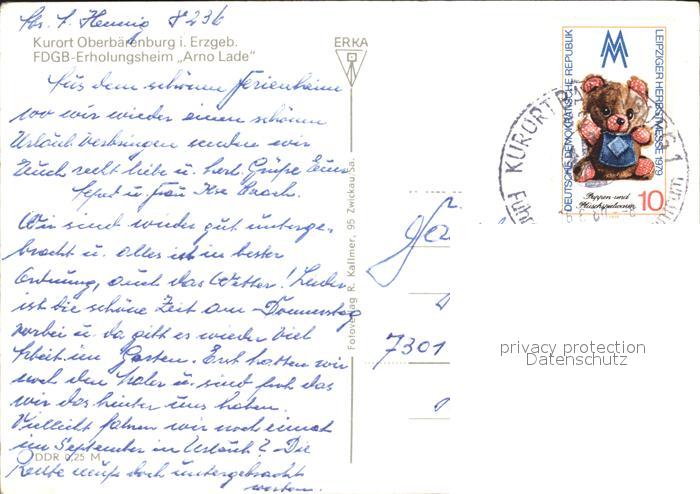 Kurort Oberbärenburg i. Erzgeb.
FDGB-Erholungsheim „Arno Lade"
ERKA
Aus dem schönen Ferienheim
wo wir wieder einen schönen
Urlaub verbringen senden wir
Euch recht liebe u. herzl. Grüße Euer
u. Frau Ilse
Wir sind wieder gut unterge-
bracht u. alles ist in bester
Ordnung, auch das Wetter! Leider
ist die schöne Zeit am Donnerstag
vorbei u. da gibt es wieder viel
Arbeit im Garten. Erst hatten wir
noch den Maler u. sind froh das
wir das hinter uns haben.
Vielleicht fahren wir noch einmal
im September in Urlaub? Die
Leute muß doch untergebracht
werden.
DDR 0,25 M
Fotoverlag R. Kallmer, 95 Zwickau Sa.
DEUTSCHE DEMOKRATISCHE REPUBLIK
LEIPZIGER HERBSTMESSE 1979
Puppen und
Plüschspielwaren
10
KURORT
7301
privacy protection
Datenschutz